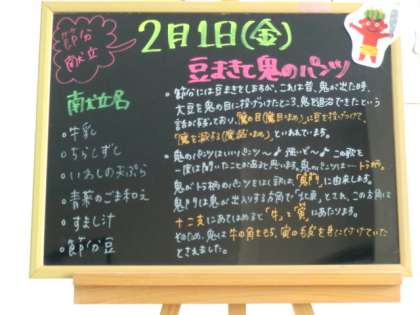 節分
献立
2月1日(金)
豆まきと鬼のパンツ
献立名
・牛乳
・ちらしずし
・いわしの天ぷら
・青菜のごま和え
・すまし汁
・節分豆
・節分には豆まきをしますが、これは昔、鬼が出た時、
大豆を鬼の目に投げつけたところ、鬼を退治できたという
話が残っており、魔の目(魔目=まめ)に豆を投げつけて、
「魔を滅する(魔滅=まめ)」といわれています。
・鬼のパンツはいいパンツ〜♪ 強いぞ〜♪ この歌を
一度は聞いたことがあると思います。鬼のパンツは…トラ柄。
鬼がトラ柄のパンツをはく訳は、「鬼門」に由来します。
鬼門は鬼が出入りする方角で「北東」とされ、この方角は
十二支にあてはめると「牛」と「寅」にあたります。
そのため、鬼は牛の角をもち、寅の毛皮を身に付けていた
とされました。